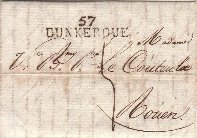 57
DUNKERQUE
Madame
Le Couteulx
Rouen